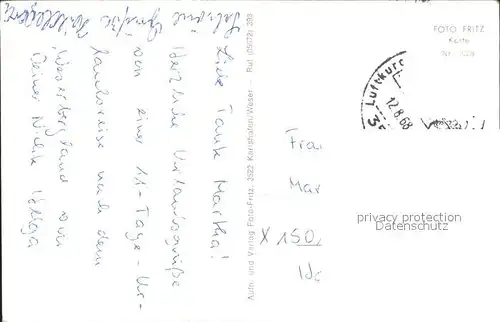 Liebe Tante Martha!
Herzliche Urlaubsgrüße
von einer 11-Tage-Ur-
laubsreise nach dem
Weserbergland von
Deiner Nichte Helga
Schöne Grüße
Aufn. und Verlag Foto-Fritz, 3522 Karlshafen/Weser Ruf (05672) 309
FOTO FRITZ
Karte
Nr.
Luftkuro
12.8.68
35
Frau
Mar
150,
privacy protection
Datenschutz